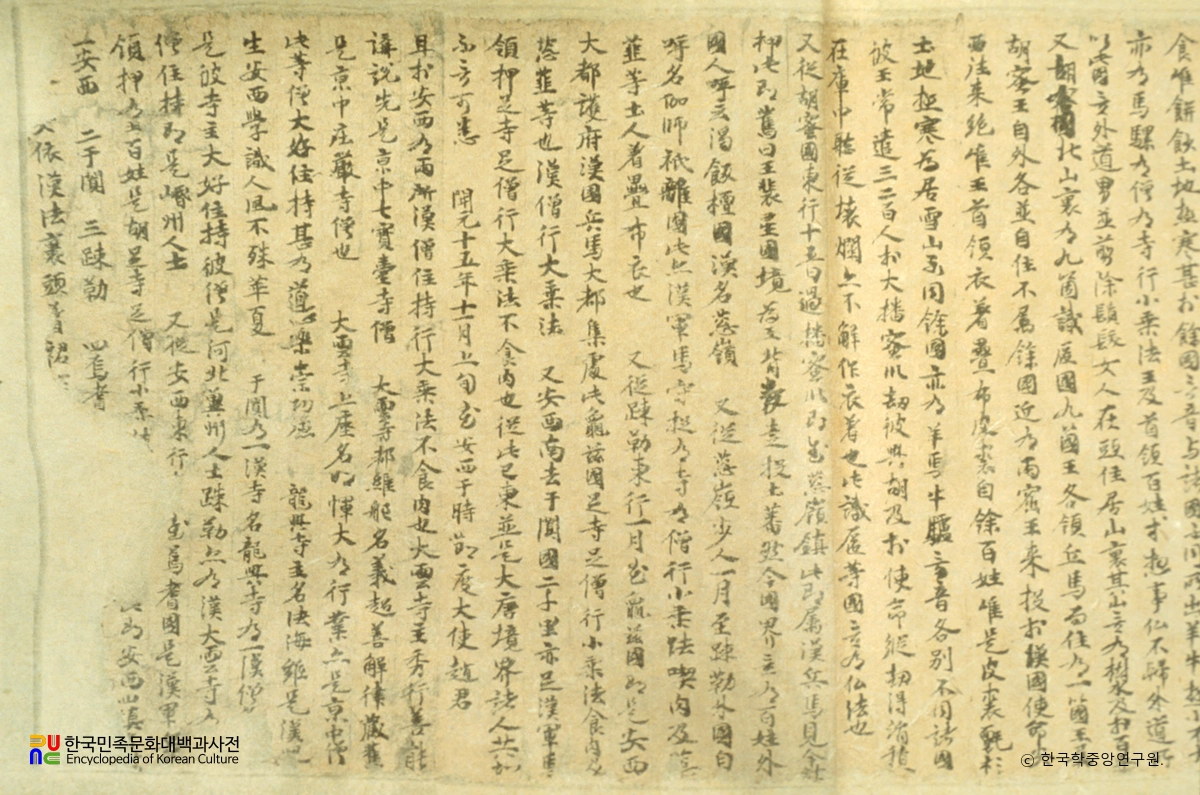 食唯餅麨土地極寒甚於餘國言音與諸國不同所出羊牛極小不大
亦有馬騾有僧有寺行小乘法王及首領百姓等惣事仏不歸外道所
以此國無外道男並剪除鬚髮女人在頭住居山裏其山無有樹水及於百
又胡蜜國北山裏有九箇識匿國九箇王各領兵馬而住有一箇王
胡蜜王自外各並自住不屬餘國近有兩窟王來投於漢國使命
西往來絕唯王首領衣著疊布皮裘自餘百姓唯是皮裘氈衫
土地極寒為居雪山不同餘國亦有羊馬牛驢言音各別不同諸國
彼王常遣三二百人於大播蜜川劫彼興胡及於使命縱劫得絹積
在庫中聽從壞爛亦不解作衣著也此識匿等國無有仏法也
又從胡蜜國東行十五日過播蜜川即至葱嶺鎮此即屬漢兵馬見今鎮
押此即舊日王裴星國境為王背叛走投土蕃然今國界無有百姓外
國人呼云渴飯檀國漢名葱嶺 又從葱嶺步入一月至疎勒外國自
呼名伽師祇離國此亦漢軍馬守捉有寺有僧行小乘法喫肉及葱
韮等土人著疊布衣也 又從疎勒東行一月至龜茲國即是安西
大都護府漢國兵馬大都集處此龜茲國足寺足僧行小乘法食肉及
葱韮等也漢僧行大乘法 又安西南去于闐國二千里亦足漢軍馬
領押足寺足僧行大乘法不食肉也從此已東並是大唐境界諸人共知
不言可悉 開元十五年十一月上旬至安西于時節度大使趙君
且於安西有兩所漢僧住持行大乘法不食肉也大雲寺主秀行善能
講說先是京中七寶臺寺僧 大雲寺都維那名義超善解律藏舊
是京中庄嚴寺僧也 大雲寺上座名明惲大有行業亦是京中僧
此等僧大好住持甚有道心樂崇功德 龍興寺主名法海雖是漢兒
生安西學識人風不殊華夏 于闐有一漢寺名龍興寺有一漢僧
是彼寺主大好住持彼僧是河北冀州人士疎勒亦有漢大雲寺有
僧住持即是崏州人士 又從安西東行 至焉耆國是漢軍
領押有王百姓是胡足寺足僧行小乘法
一安西 二于闐 三疎勒 四焉耆 此即安西四鎮
依漢法裹頭著裙
한국민족문화대백과사전
Encyclopedia of Korean Culture
ⓒ 한국학중앙연구원.